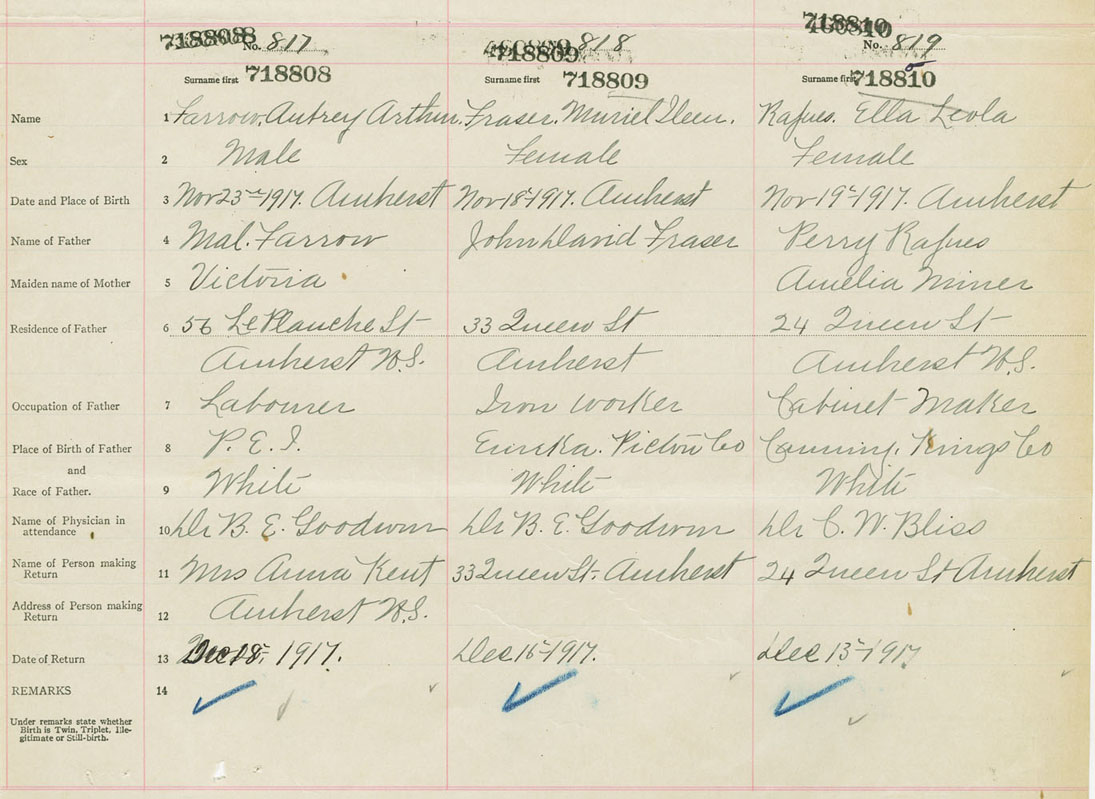 718808 No. 817 718809 818 718810 No. 819
Surname first 718808 Surname first 718809 Surname first 718810
Name 1 Farrow, Aubrey Arthur. Fraser. Muriel Ileen. Rafues. Ella Leola
Sex 2 Male Female Female
Date and Place of Birth 3 Nov 23rd 1917. Amherst Nov 18th 1917. Amherst Nov 19th 1917. Amherst
Name of Father 4 Mal. Farrow John David Fraser Perry Rafues
Maiden name of Mother 5 Victoria Amelia Miner
Residence of Father 6 56 LePlanche St 33 Queen St 24 Queen St
Amherst N.S. Amherst Amherst N.S.
Occupation of Father 7 Labourer Iron worker Cabinet Maker
Place of Birth of Father 8 P. E. I. Eureka. Pictou Co Canning. Kings Co
and
Race of Father. 9 White White White
Name of Physician in
attendance 10 Dr B. E. Goodwin Dr B. E. Goodwin Dr C. W. Bliss
Name of Person making
Return 11 Mrs Anna Kent 33 Queen St. Amherst 24 Queen St Amherst
Address of Person making
Return 12 Amherst N.S.
Date of Return 13 Dec 18, 1917. Dec 15 1917. Dec 13 1917
REMARKS 14
Under remarks state whether
Birth is Twin, Triplet, Ille-
gitimate or Still-birth.